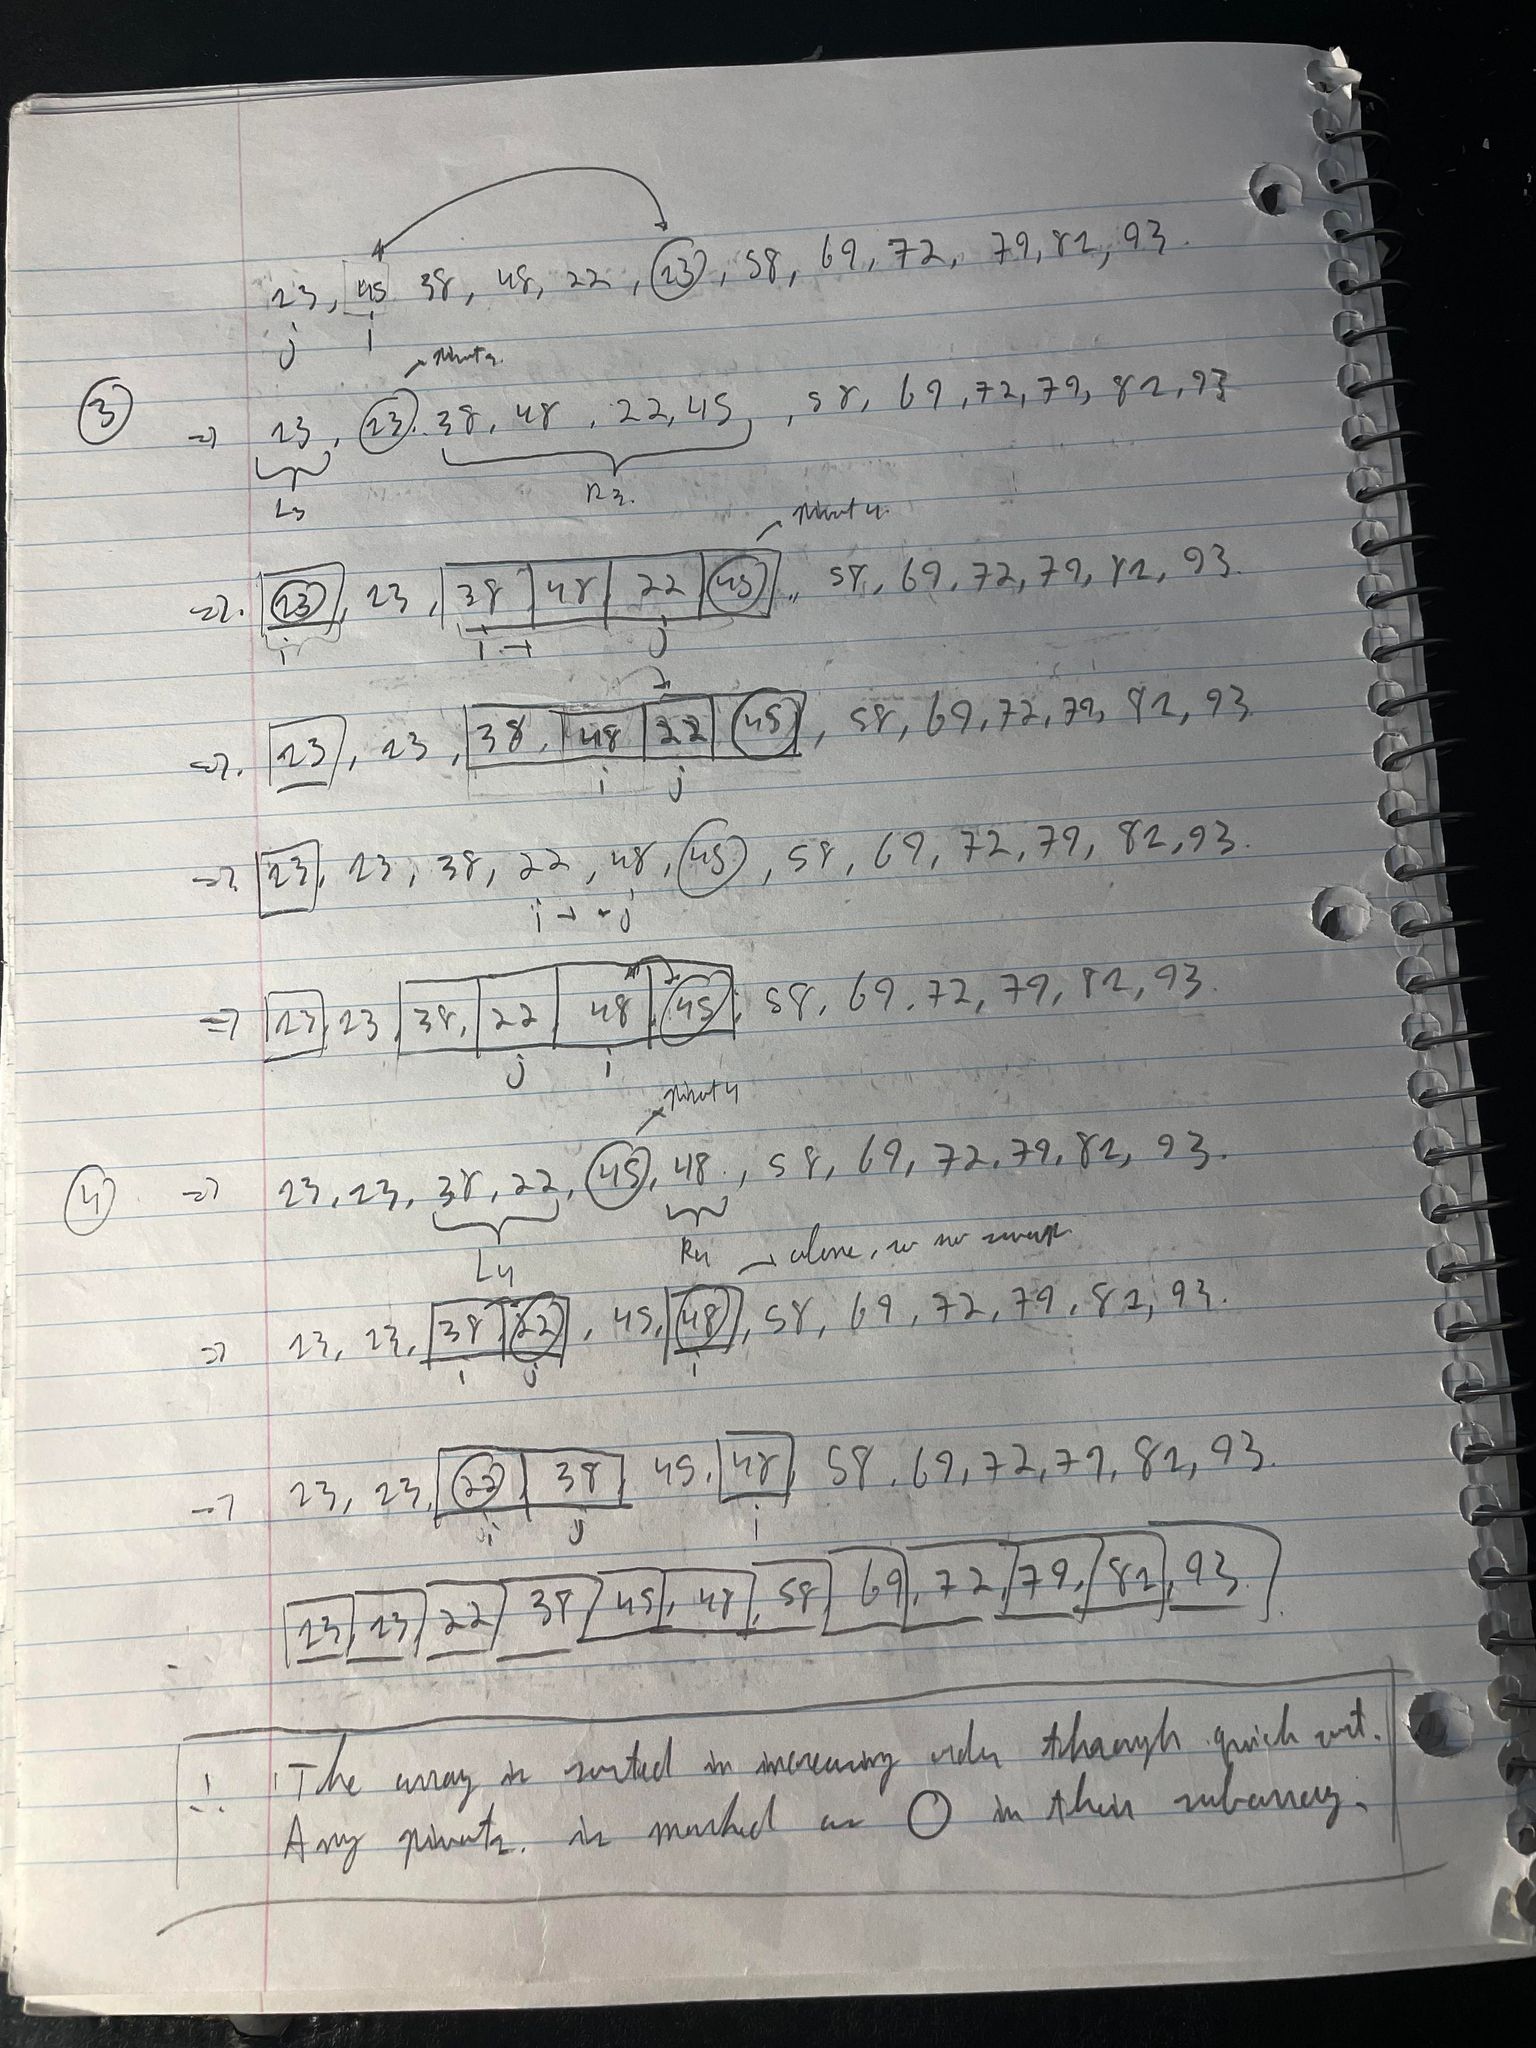 13, 45 38, 48, 22, 13, 58, 69, 72, 79, 81, 93.
j i
pivot 3.
3 => 13, 13. 38, 48, 22, 45, 58, 69, 72, 79, 81, 93
L3 R3.
pivot 4.
=> 13, 13, 38 48 22 45, 58, 69, 72, 79, 81, 93.
i i → j
=> 13, 13, 38, 48 22 45, 58, 69, 72, 79, 81, 93
i j
=> 13, 13, 38, 22, 48, 45, 58, 69, 72, 79, 81, 93.
i → ← j
=> 13, 13, 38, 22 48, 45, 58, 69, 72, 79, 81, 93.
j i
pivot 4
4 => 13, 13, 38, 22, 45, 48, 58, 69, 72, 79, 81, 93.
L4 R4 → alone, so no swap
=> 13, 13, 38, 22, 45, 48, 58, 69, 72, 79, 81, 93.
i j i
→ 13, 13, 22 38, 45, 48, 58, 69, 72, 79, 81, 93.
i j i
13, 13, 22 38 45, 48, 58, 69, 72, 79, 81, 93.
∴ The array is sorted in increasing order through quick sort.
Any pivots. is marked as ○ in their subarray.